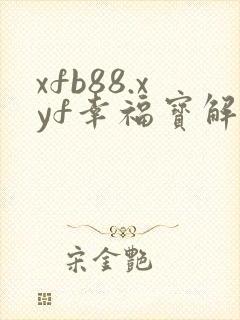 xfb88.x
yf幸福宝解
宋金艷